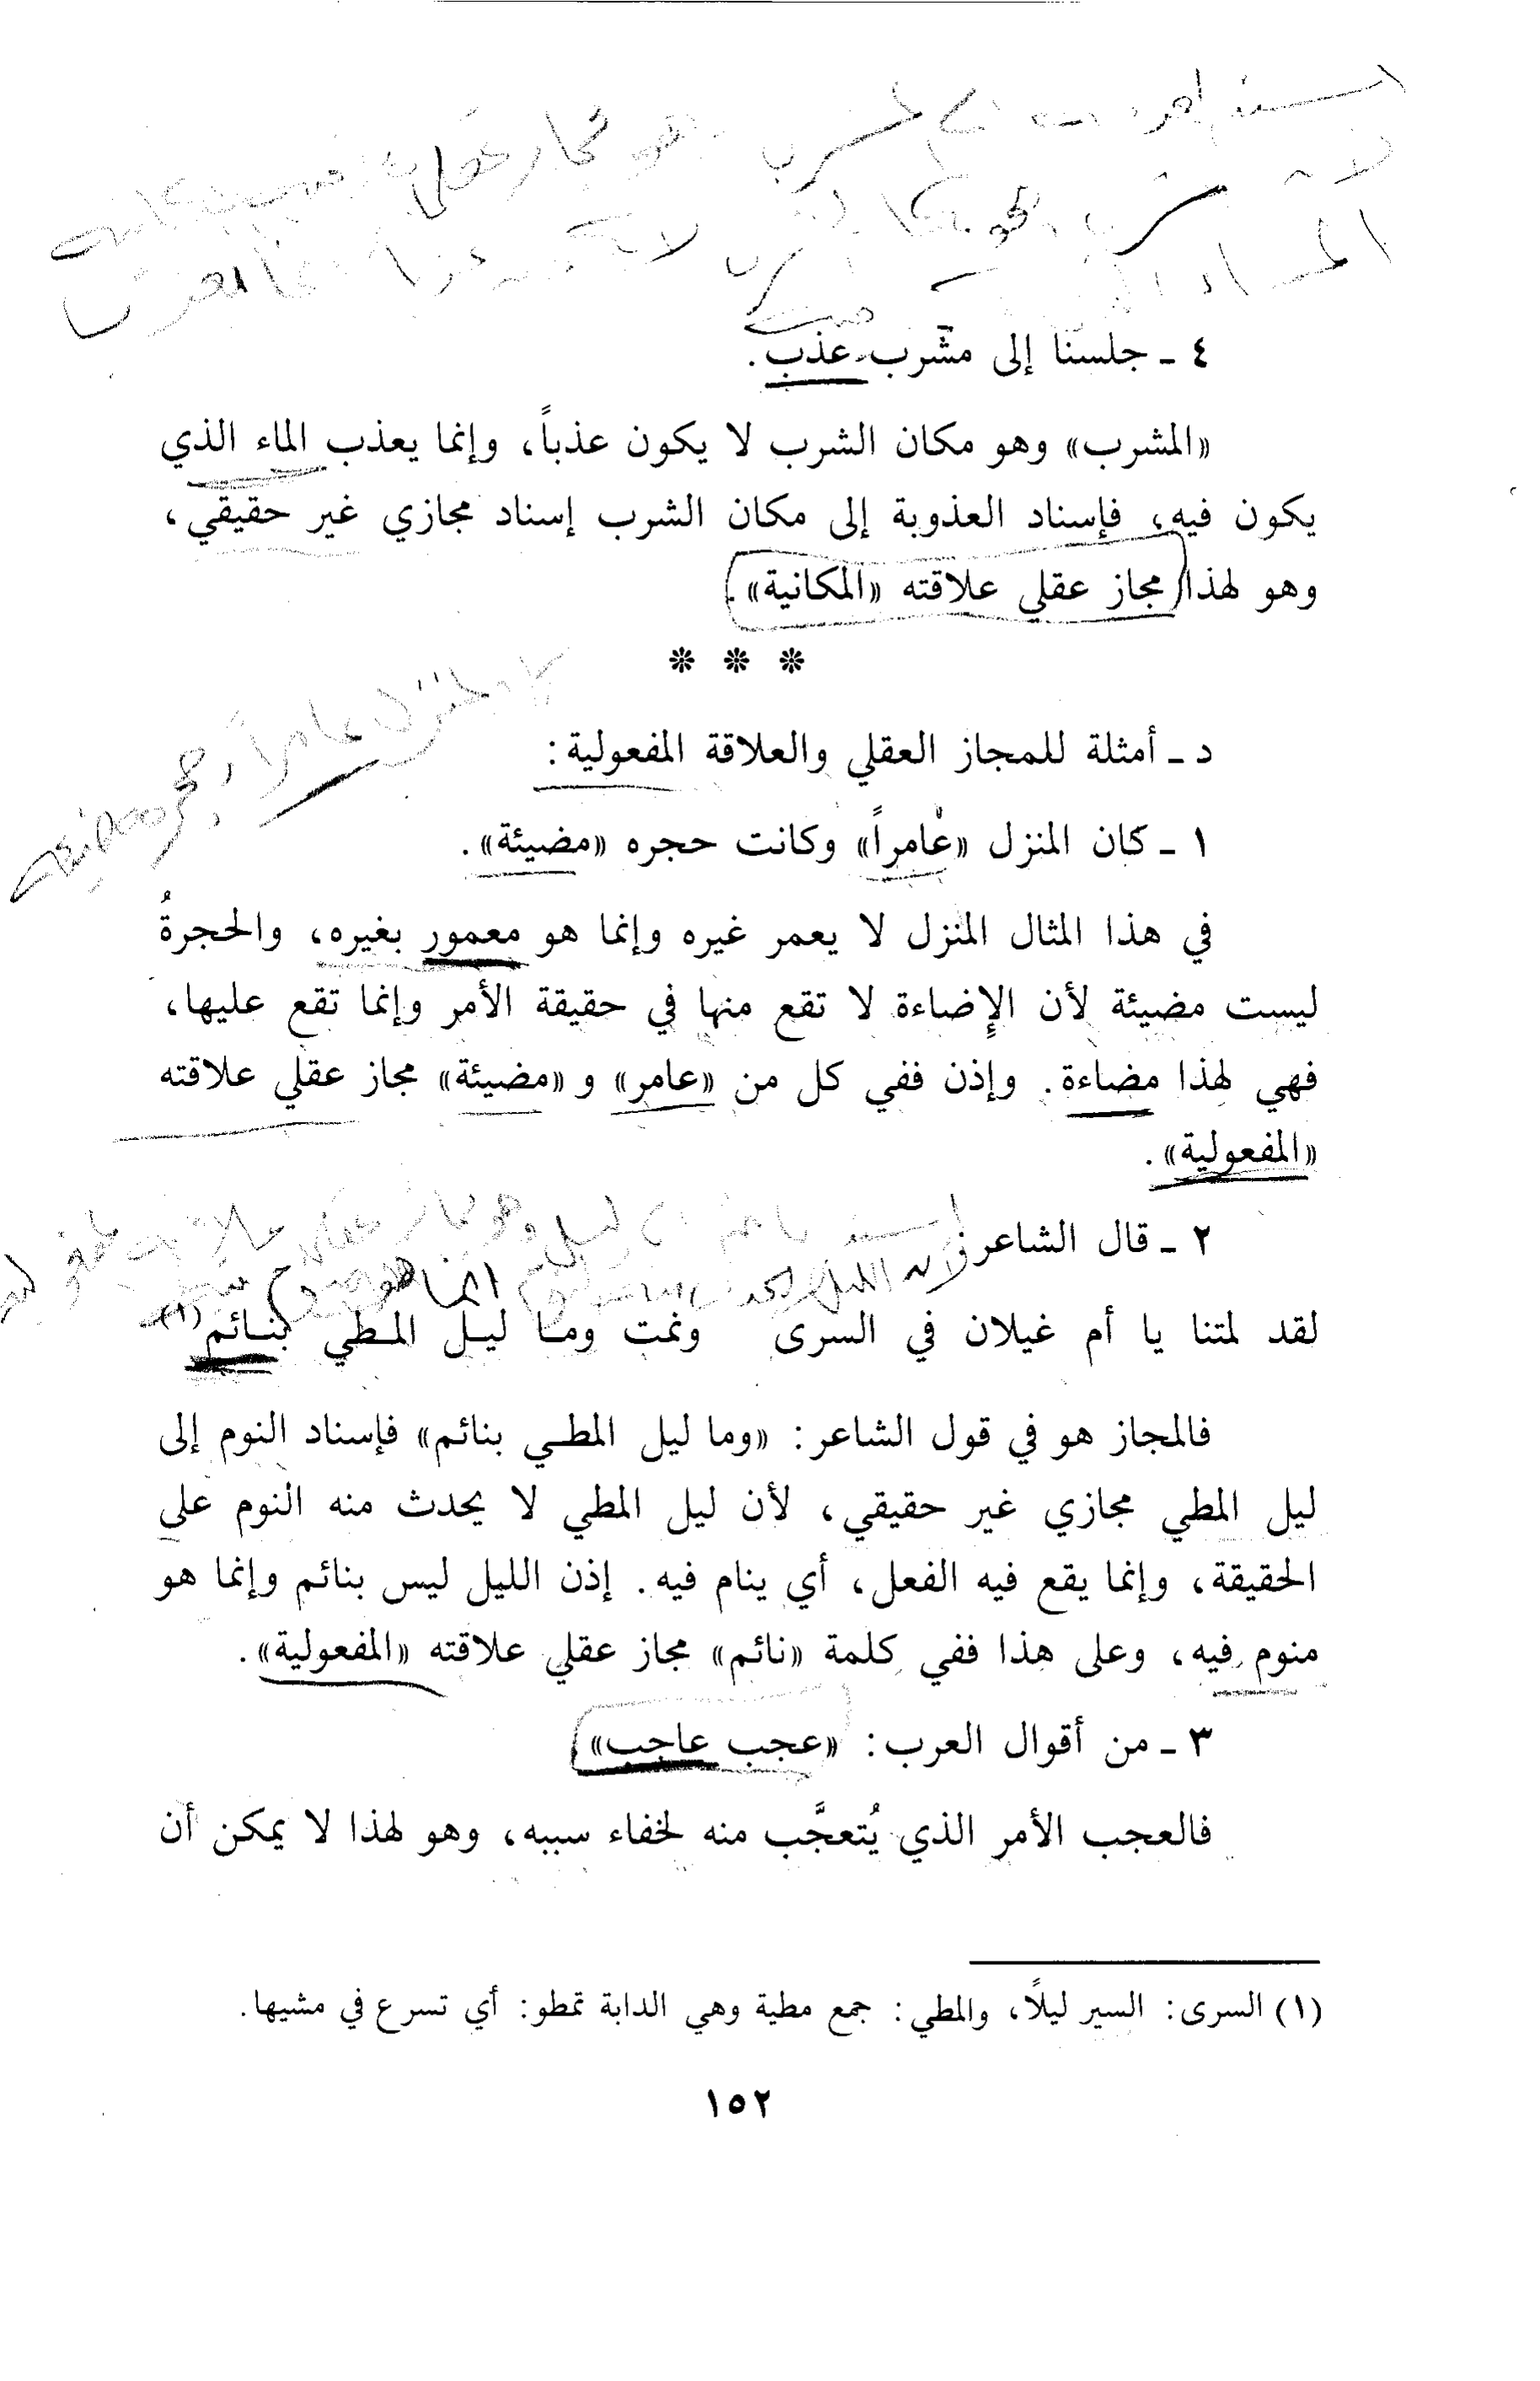 ٤ ـ جلسنا إلى مشرب عذب.
«المشرب» وهو مكان الشرب لا يكون عذباً، وإنما يعذب الماء الذي
يكون فيه، فإسناد العذوبة إلى مكان الشرب إسناد مجازي غير حقيقي،
وهو لهذا مجاز عقلي علاقته «المكانية».
* * *
د ـ أمثلة للمجاز العقلي والعلاقة المفعولية:
١ ـ كان المنزل «عامراً» وكانت حجره «مضيئة».
في هذا المثال المنزل لا يعمر غيره وإنما هو معمور بغيره، والحجرةُ
ليست مضيئة لأن الإِضاءة لا تقع منها في حقيقة الأمر وإنما تقع عليها،
فهي لهذا مضاءة. وإذن ففي كل من «عامر» و «مضيئة» مجاز عقلي علاقته
«المفعولية».
٢ ـ قال الشاعر:
لقد لمتنا يا أم غيلان في السرى ونمت وما ليل المطي بنائم(١)
فالمجاز هو في قول الشاعر: «وما ليل المطي بنائم» فإسناد النوم إلى
ليل المطي مجازي غير حقيقي، لأن ليل المطي لا يحدث منه النوم على
الحقيقة، وإنما يقع فيه الفعل، أي ينام فيه. إذن الليل ليس بنائم وإنما هو
منوم فيه، وعلى هذا ففي كلمة «نائم» مجاز عقلي علاقته «المفعولية».
٣ ـ من أقوال العرب: «عجب عاجب»
فالعجب الأمر الذي يُتعجَّب منه لخفاء سببه، وهو لهذا لا يمكن أن
(١) السرى: السير ليلاً، والمطي: جمع مطية وهي الدابة تمطو: أي تسرع في مشيها.
١٥٢